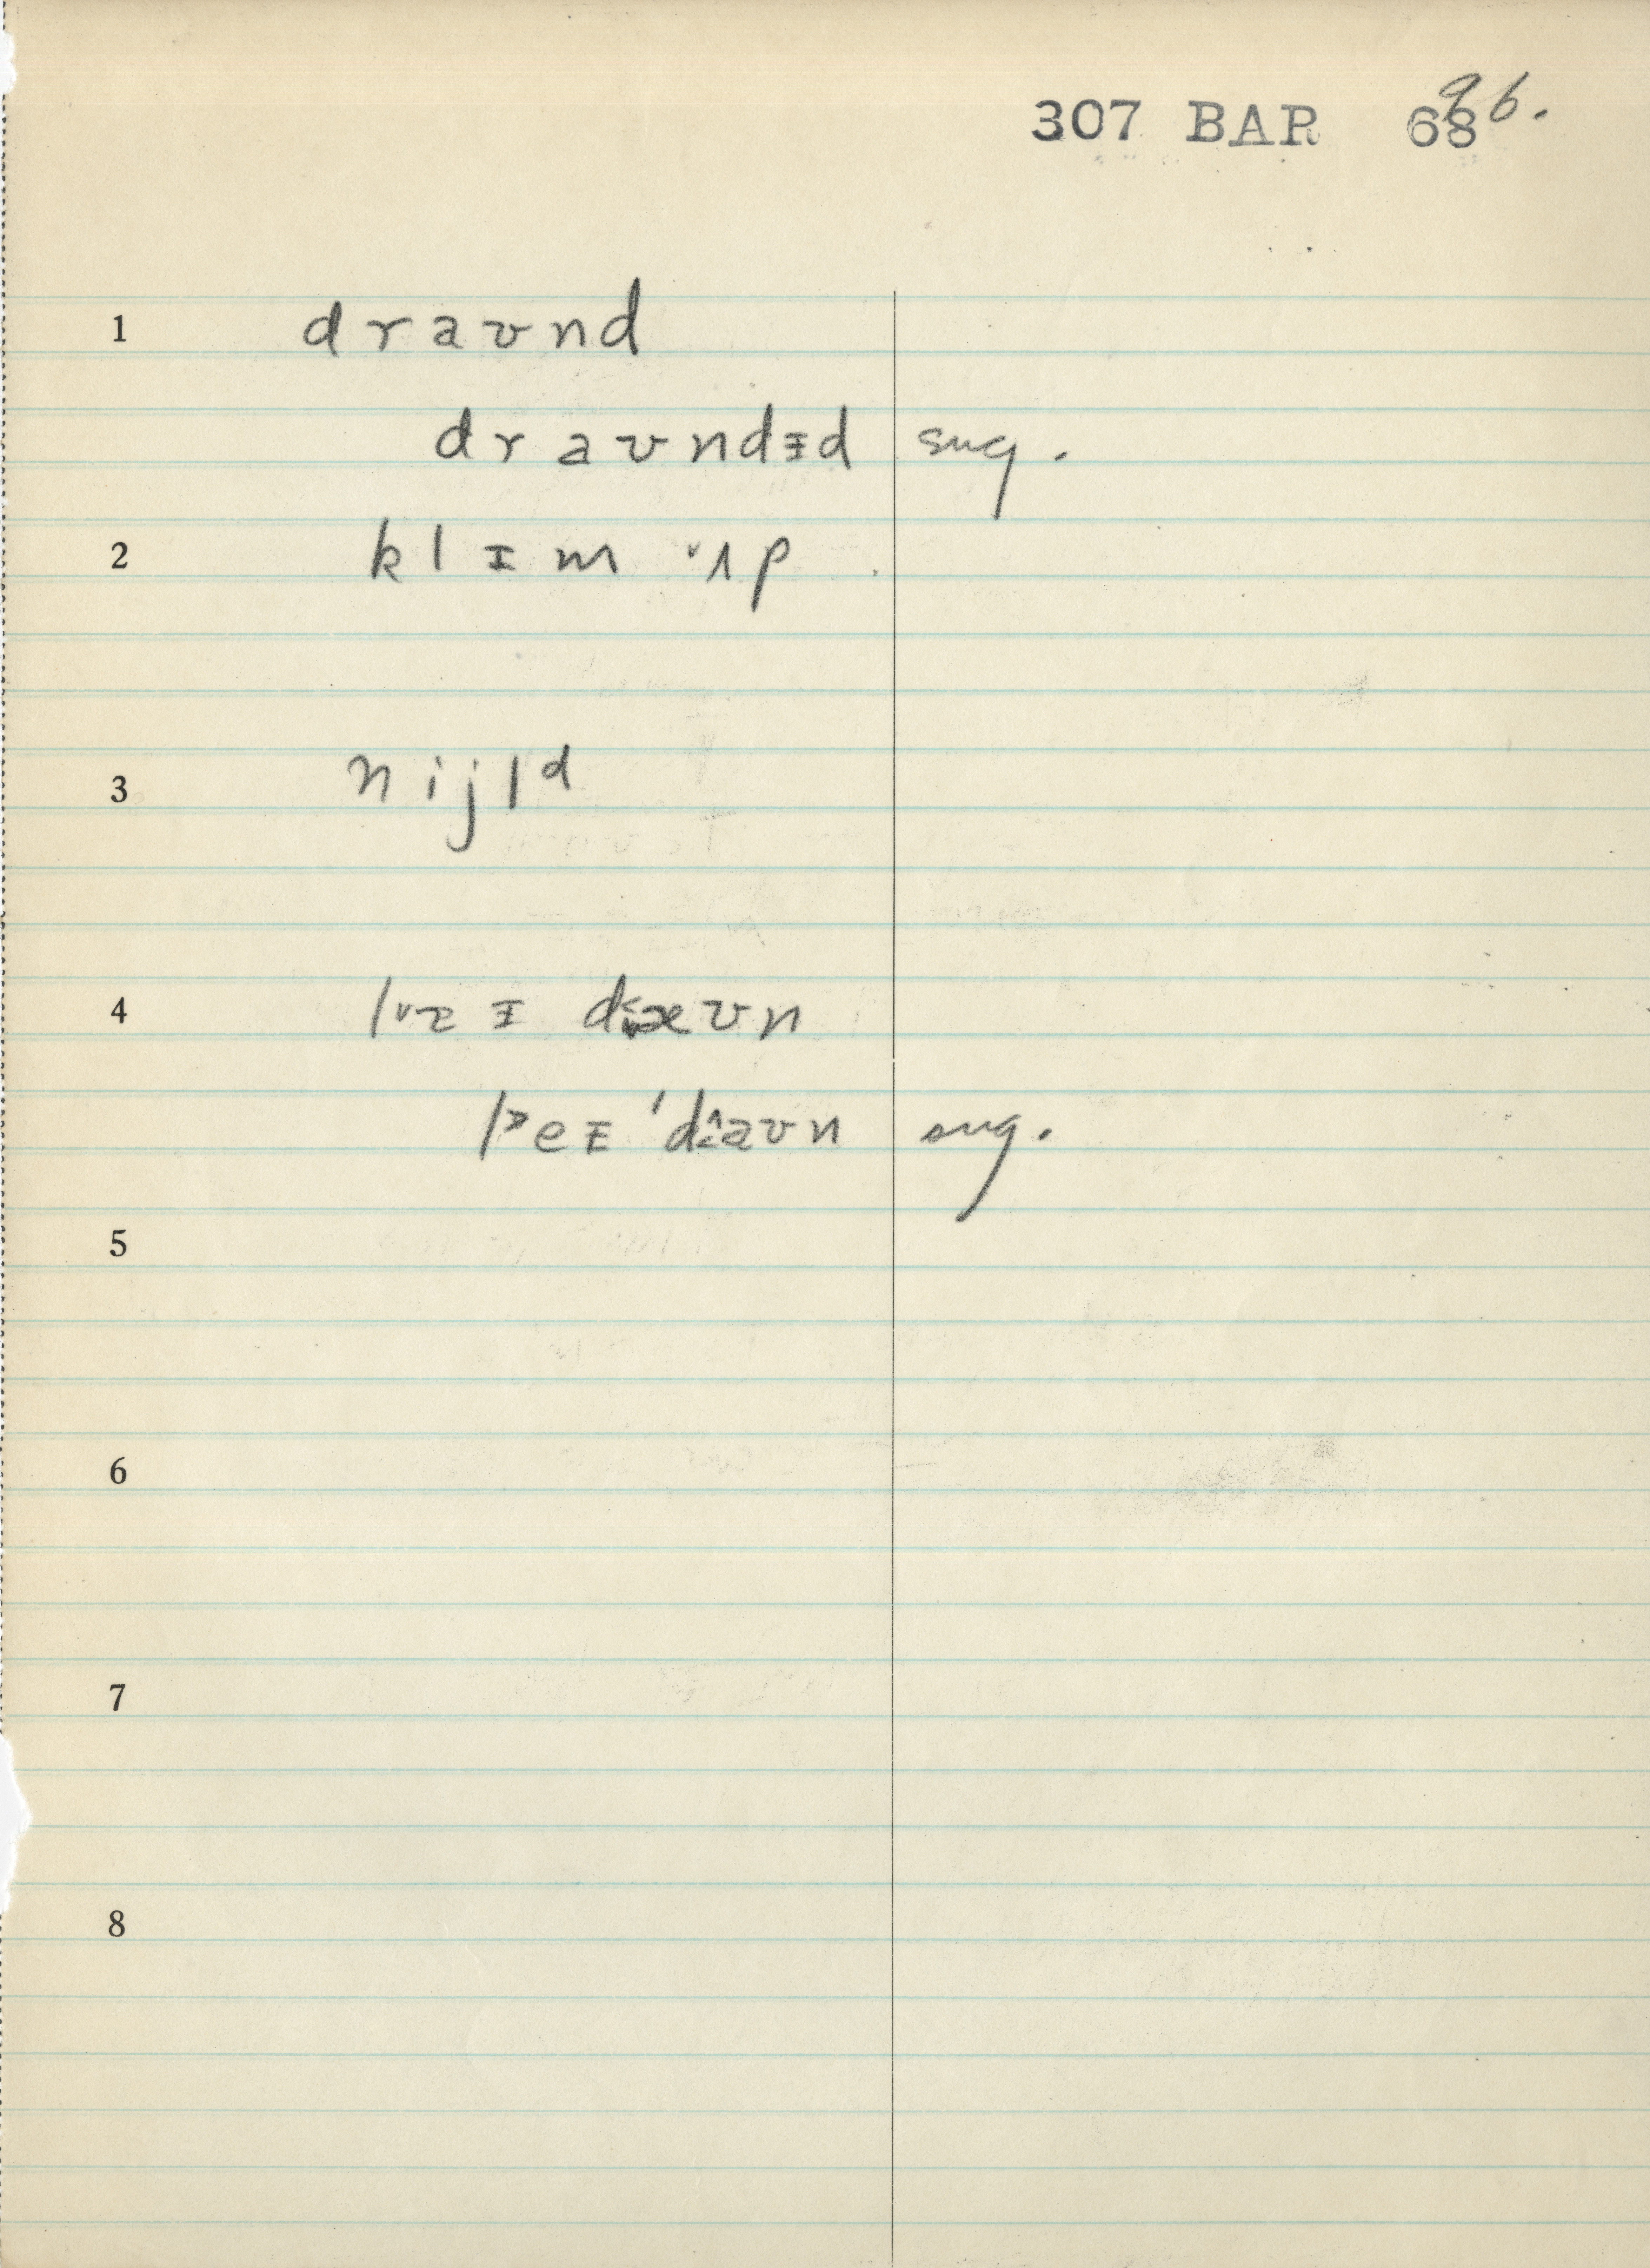 307 BAR 68 96.
1 d r a ʊ n d
d r a ʊ n d ɪ d sug.
2 k l ɪ m ˅ʌ p
3 n i j l ᵈ
4 ʊ n
ˈd ʊ n sug.
5
6
7
8